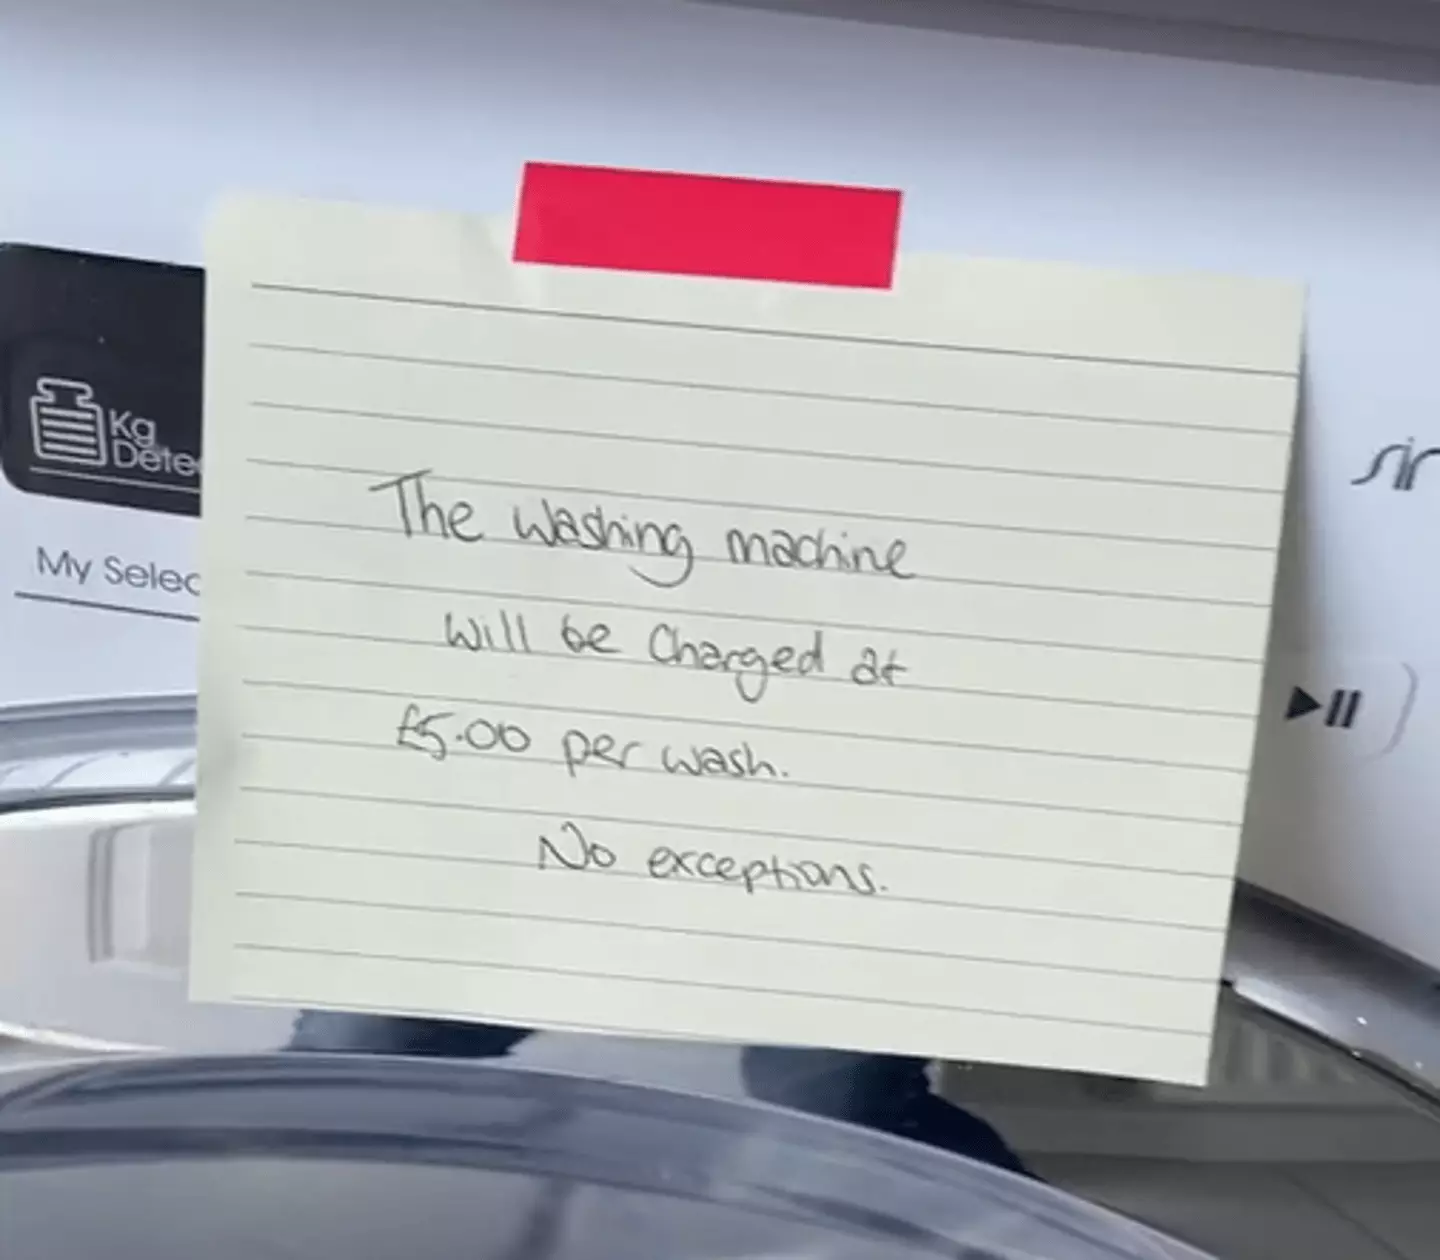 Kg
Detec
My Selec
The washing machine
will be charged at
£5.00 per wash.
No exceptions.